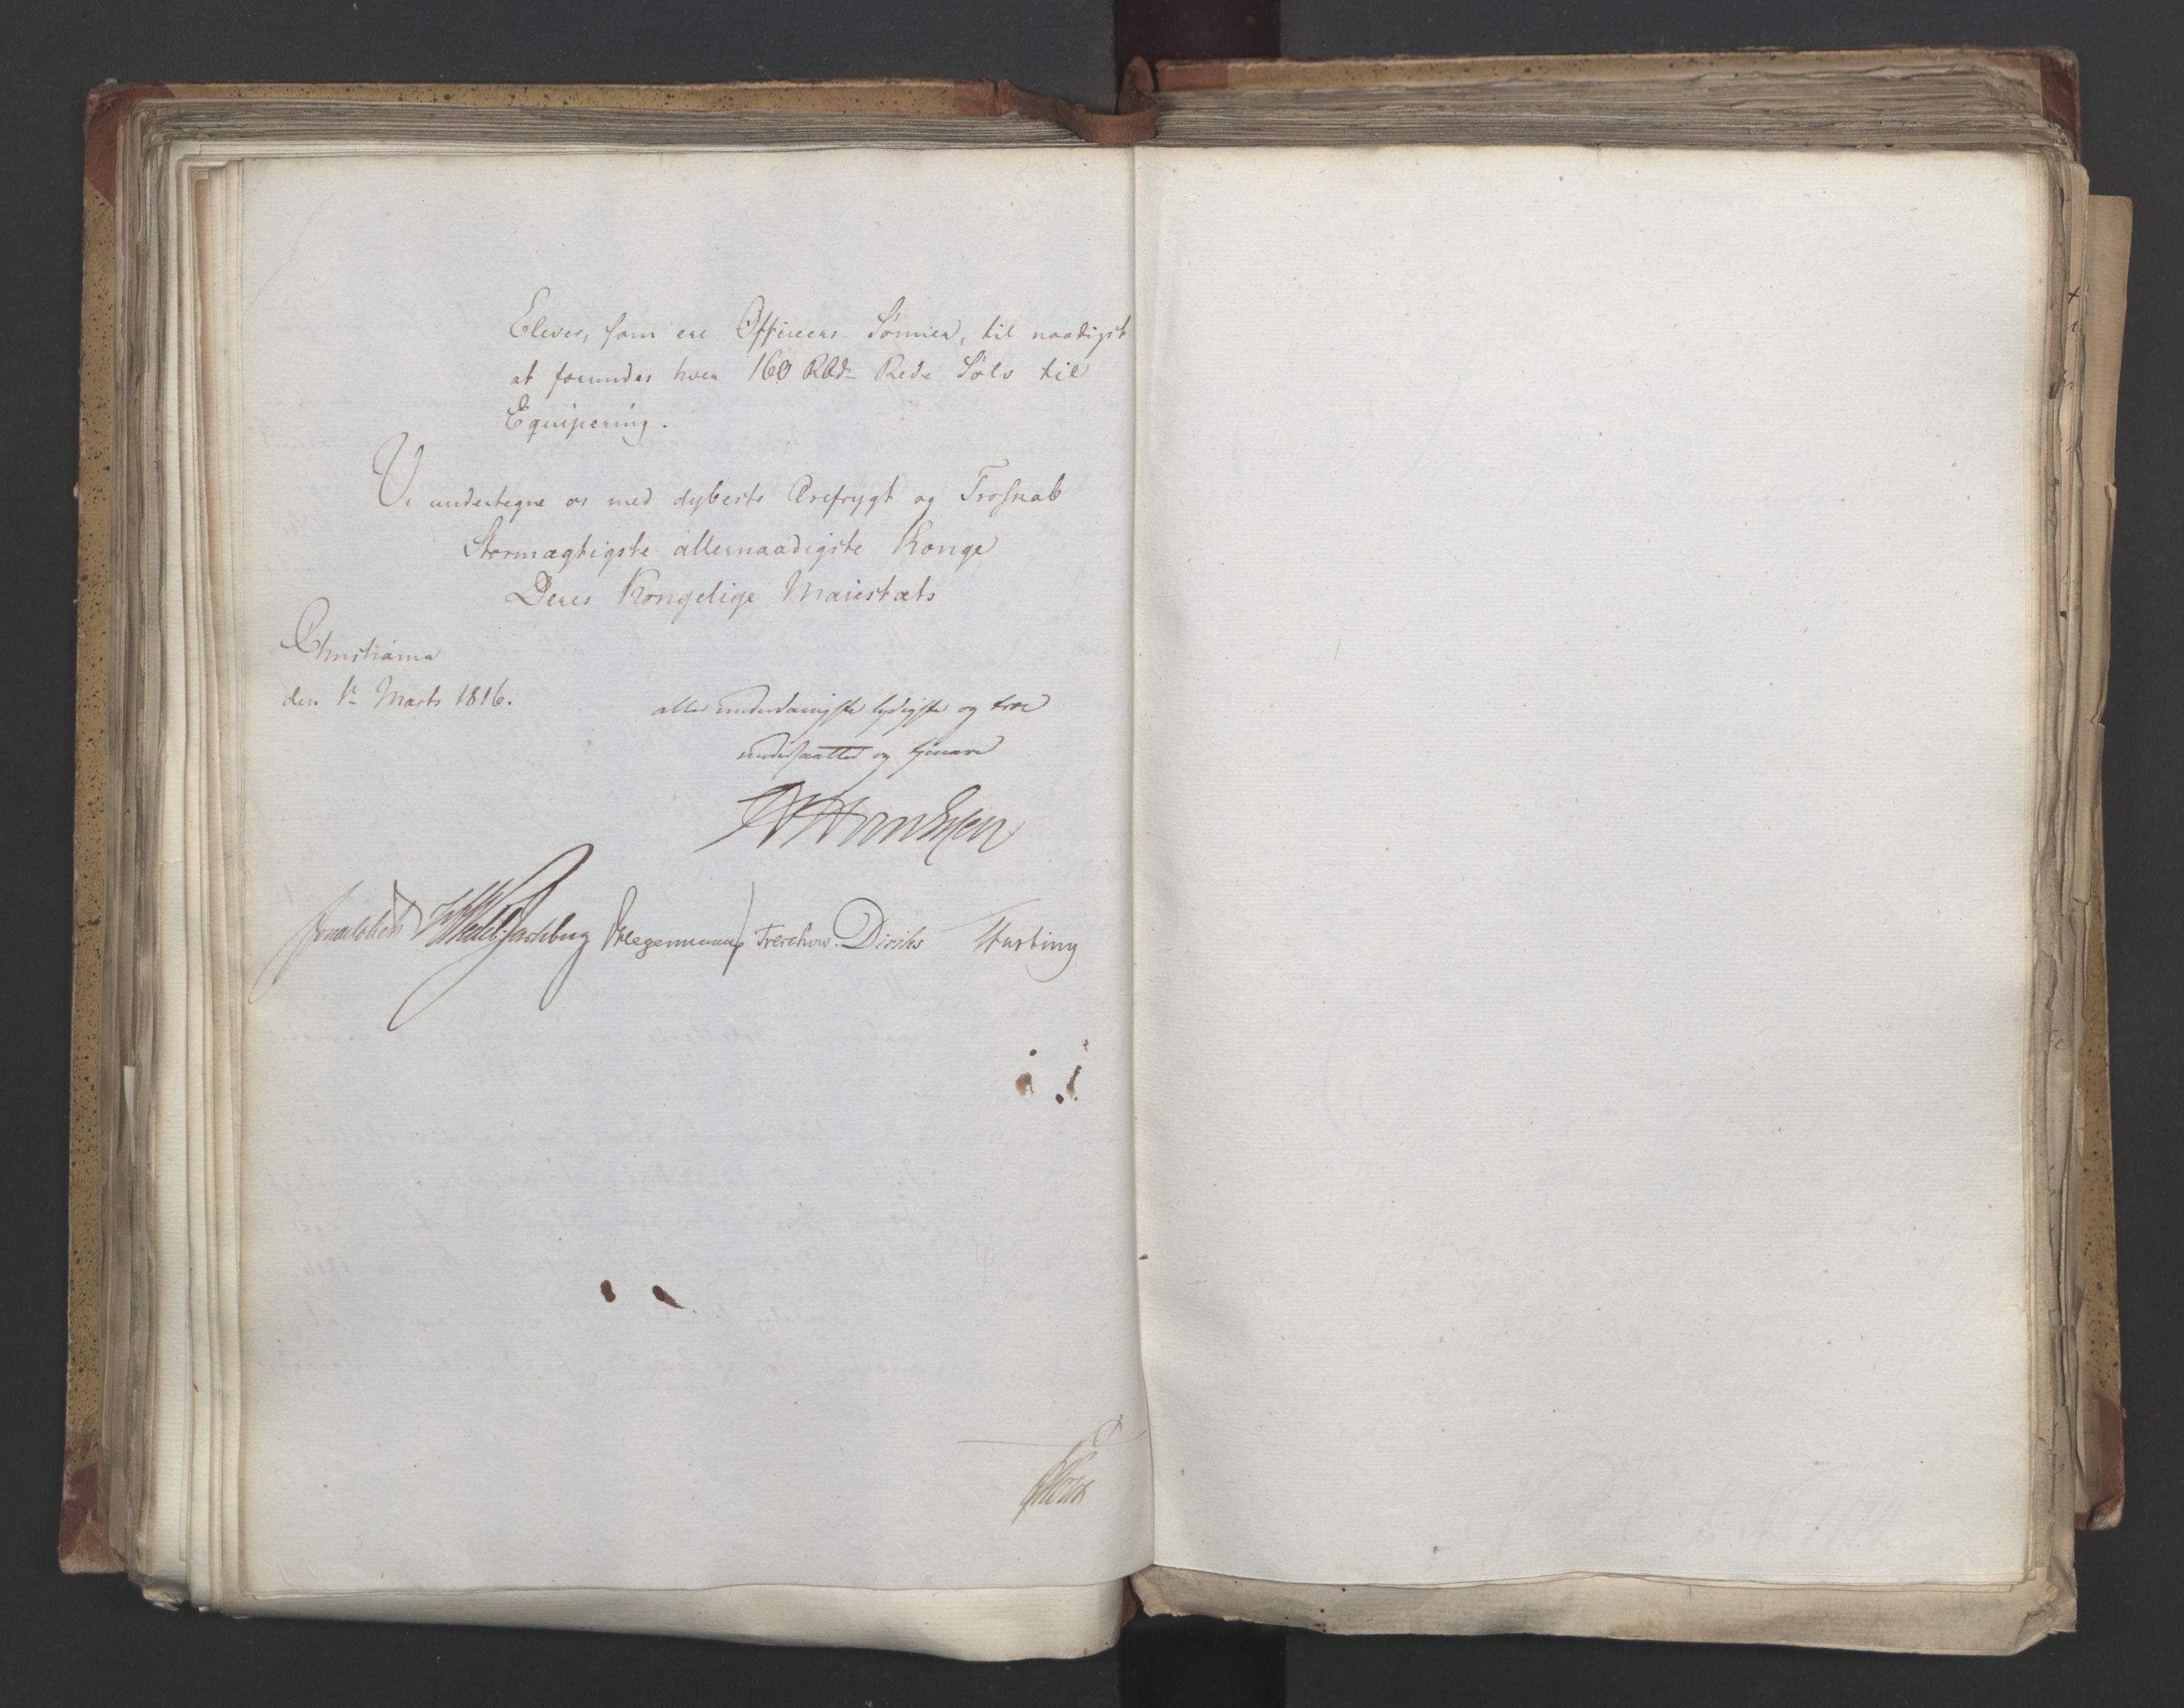 Elever, som ere Officeers Sønner, til naadigst
at forundes hver 160 Rbd. Rede Sølv til
Equipering.
Vi undertegne os med dybeste Ærefrygt og Troskab
Stormægtigste allernaadigste Konge
Deres Kongelige Maiestæts
Christiania
den 1te Marts 1816.
allerunderdanigste lydigste og troe
undersaatter og tjenere
Sommerhielm Wedel Jarlsberg Hegermann Treschow. Diriks Hasting